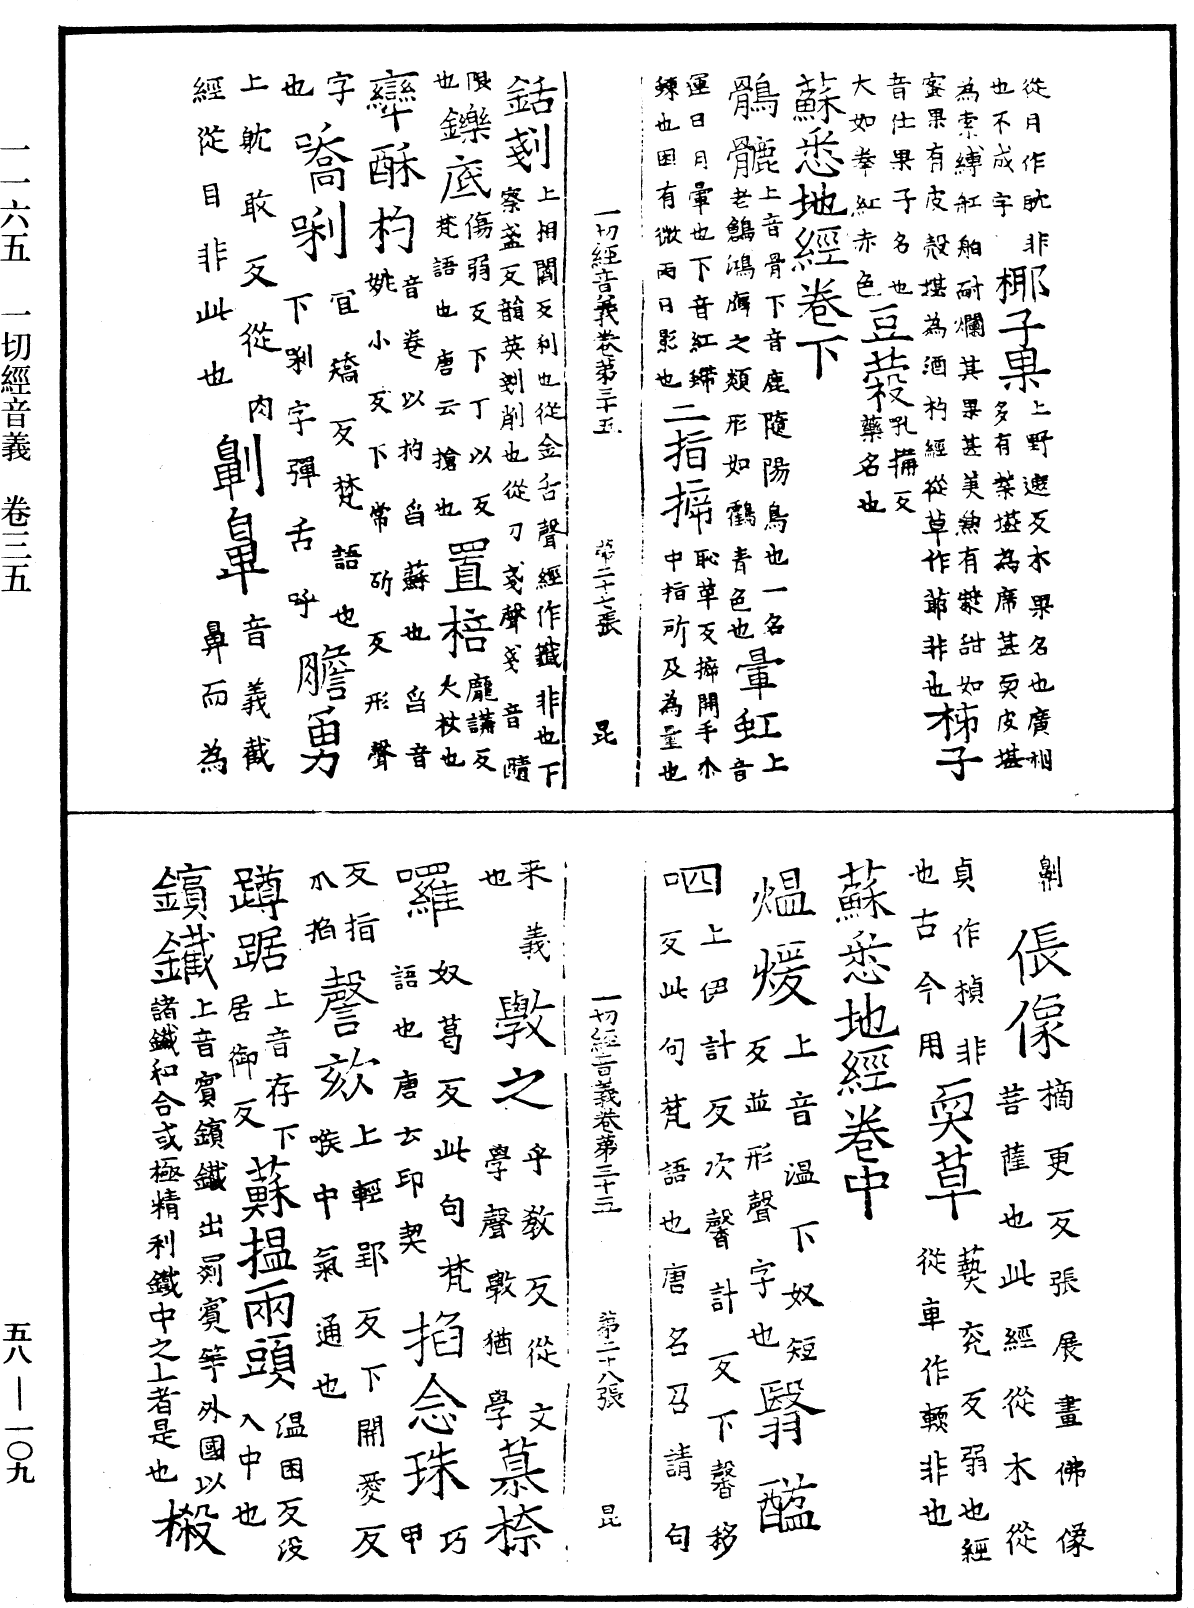 一一六五　一切經音義　卷三五
五八—一〇九
從月作耽非 椰子菓 上野遮反木果名也廣州
也不成字 多有葉堪為席甚耎皮堪
為索縛舡舶耐爛其果甚美兼有漿甜如
蜜果有皮殼堪為酒杓經從草作䓉非也 柹子
音仕果子名也 豆蔲 乳搆反藥名也
大如拳紅赤色
蘇悉地經卷下
鶻䴡 上音骨下音鹿隨陽鳥也一名
老鷁鴻鴈之類形如鸛青色也 暈虹 上音
運日月暈也下音紅䗖
蝀也因有微雨日影也 二指㨹 恥草反㨹開手大
中指所及為量也
一切經音義卷第三十五　第二十七張　昆
銛剗 上相閻反利也從金舌聲經作鐵非也下
察盞反韻英剗削也從刀戔聲戔音賾
限也 鑠底 傷弱反下丁以反
梵語也唐云搶也 置棓 龐講反
大杖也
㪻酥杓 音卷以杓舀蘇也舀音
姚小反下常斫反形聲
字也 喬唎 宜矯反梵語也
下唎字彈舌呼 膽勇
上躭敢反從肉
經從目非此也 劓鼻 音義截
鼻而為
劓 倀像 摘更反張展畫佛像
菩薩也此經從木從
貞作楨非 耎草 䓴充反弱也經
也古今用 從車作輭非也
蘇悉地經卷中
熅煖 上音溫下奴短
反並形聲字也 翳醯
呬 上伊計反次馨計反下馨移
反此句梵語也唐名召請句
一切經音義卷第三十五　第二十八張　昆
来義也 斆之 乎敎反從文
學聲斆猶學 慕㮏
囉 奴葛反此句梵
語也唐云印契 掐念珠 巧甲
反指爪掐 謦欬 上輕郢反下開愛反
喉中氣通也
蹲踞 上音存下
居御反 蘇揾兩頭 温困反没
入中也
鑌鐵 上音賓鑌鐵出罽賓等外國以
諸鐵和合或極精利鐵中之上者是也 樧